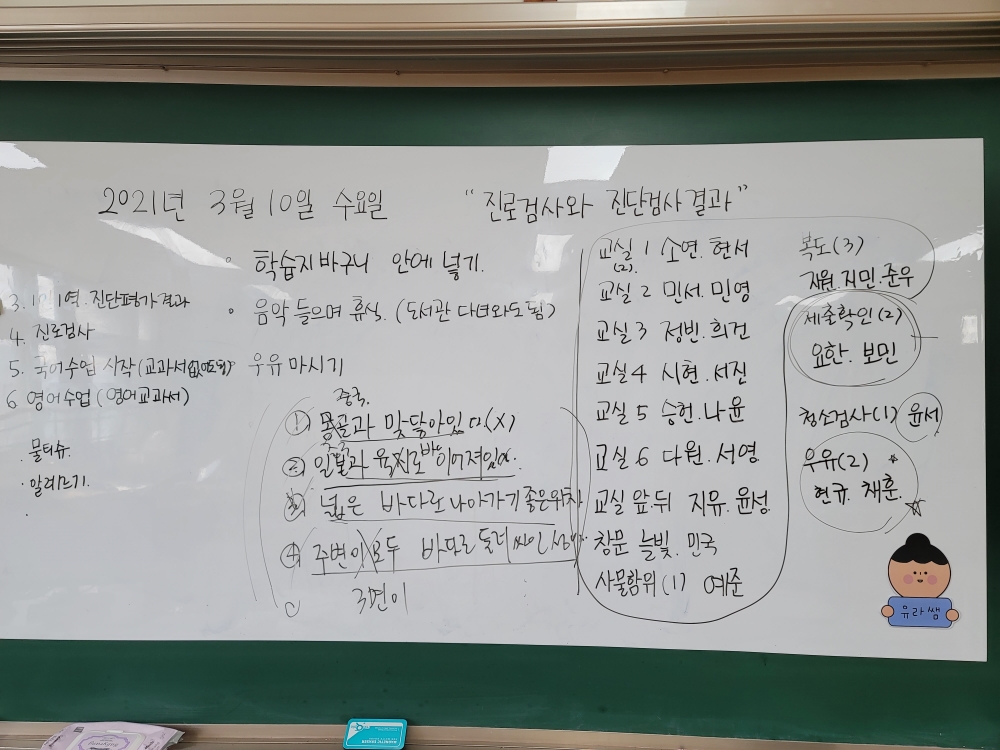 2021년 3월 10일 수요일 "진로검사와 진단검사결과"
학습지바구니 안에 넣기.
음악 들으며 휴식. (도서관 다녀와도 됨)
우유 마시기
3. 진단평가결과
4. 진로검사
5. 국어수업 시작(교과서
6 영어수업(영어교과서)
· 물티슈.
· 알려쓰기.
중국.
① 몽골과 맞닿아있다.(X)
중국
② 일본과 육지로 이어져있
바
③ 넓은 바다로 나아가기 좋은위치
④ 주변이 모두 바다로 둘러 싸인 섬
3면이
교실 1 소연. 현서
(2).
교실 2 민서. 민영
교실 3 정빈. 희건
교실 4 시현. 서진
교실 5 승헌. 나윤
교실 6 다원. 서영
교실 앞.뒤 지유. 윤성
창문 늘빛. 민국
사물함위(1) 예준
복도(3)
지원. 지민. 준우
제출확인(2)
요한. 보민
청소검사(1) 윤서
우유(2)
현규. 채훈.
유라쌤